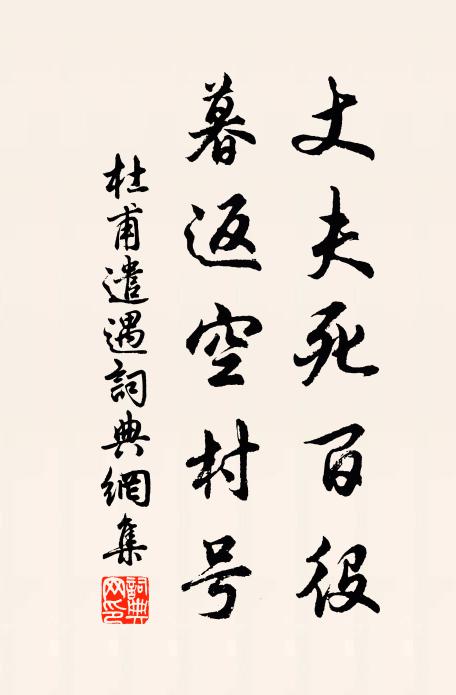 丈夫死百役
暮返空村号
杜甫遣遇詞典網集
詞典網印